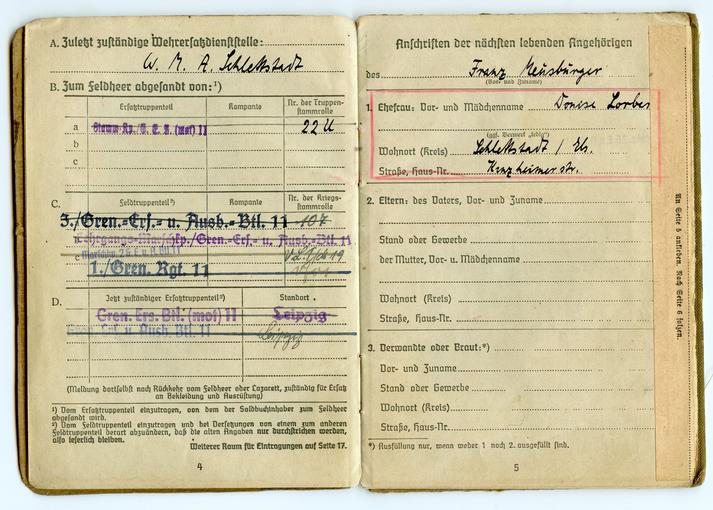 A. Zuletzt zuständige Wehrersatzdienststelle:
W. M. A. Schlettstadt
B. Zum Feldheer abgesandt von:¹)
Ersatztruppenteil Kompanie Nr. der Truppen-
stammrolle
a Stamm-Kp./G. E. B. (mot) 11 22 U
b
c
C. Feldtruppenteil²) Kompanie Nr. der Kriegs-
stammrolle
3./Gren.-Ers.- u. Ausb.-Btl. 11 107
/Gren.-Ers.- u. Ausb.-Btl. 11
c
1./Gren. Rgt. 11
D. Jetzt zuständiger Ersatztruppenteil²) Standort
Gren. Ers. Btl. (mot) 11 Leipzig
Ers. u. Ausb. Btl. 11 Leipzig
(Meldung dortselbst nach Rückkehr vom Feldheer oder Lazarett, zuständig für Ersatz
an Bekleidung und Ausrüstung)
¹) Vom Ersatztruppenteil einzutragen, von dem der Soldbuchinhaber zum Feldheer
abgesandt wird.
²) Vom Feldtruppenteil einzutragen und bei Versetzungen von einem zum anderen
Feldtruppenteil derart abzuändern, daß die alten Angaben nur durchstrichen werden,
also leserlich bleiben.
Weiterer Raum für Eintragungen auf Seite 17.
4
Anschriften der nächsten lebenden Angehörigen
des Franz Meusburger
(Vor- und Zuname)
1. Ehefrau: Vor- und Mädchenname Denise Lorber
(ggf. Vermerk „ledig“)
Wohnort (Kreis) Schlettstadt / Els.
Straße, Haus-Nr. Kinzheimerstr.
2. Eltern: des Vaters, Vor- und Zuname
Stand oder Gewerbe
der Mutter, Vor- u. Mädchenname
Wohnort (Kreis)
Straße, Haus-Nr.
3. Verwandte oder Braut:*)
Vor- und Zuname
Stand oder Gewerbe
Wohnort (Kreis)
Straße, Haus-Nr.
*) Ausfüllung nur, wenn weder 1 noch 2. ausgefüllt sind.
5
An Seite 5 ankleben. Nach Seite 6 falzen.